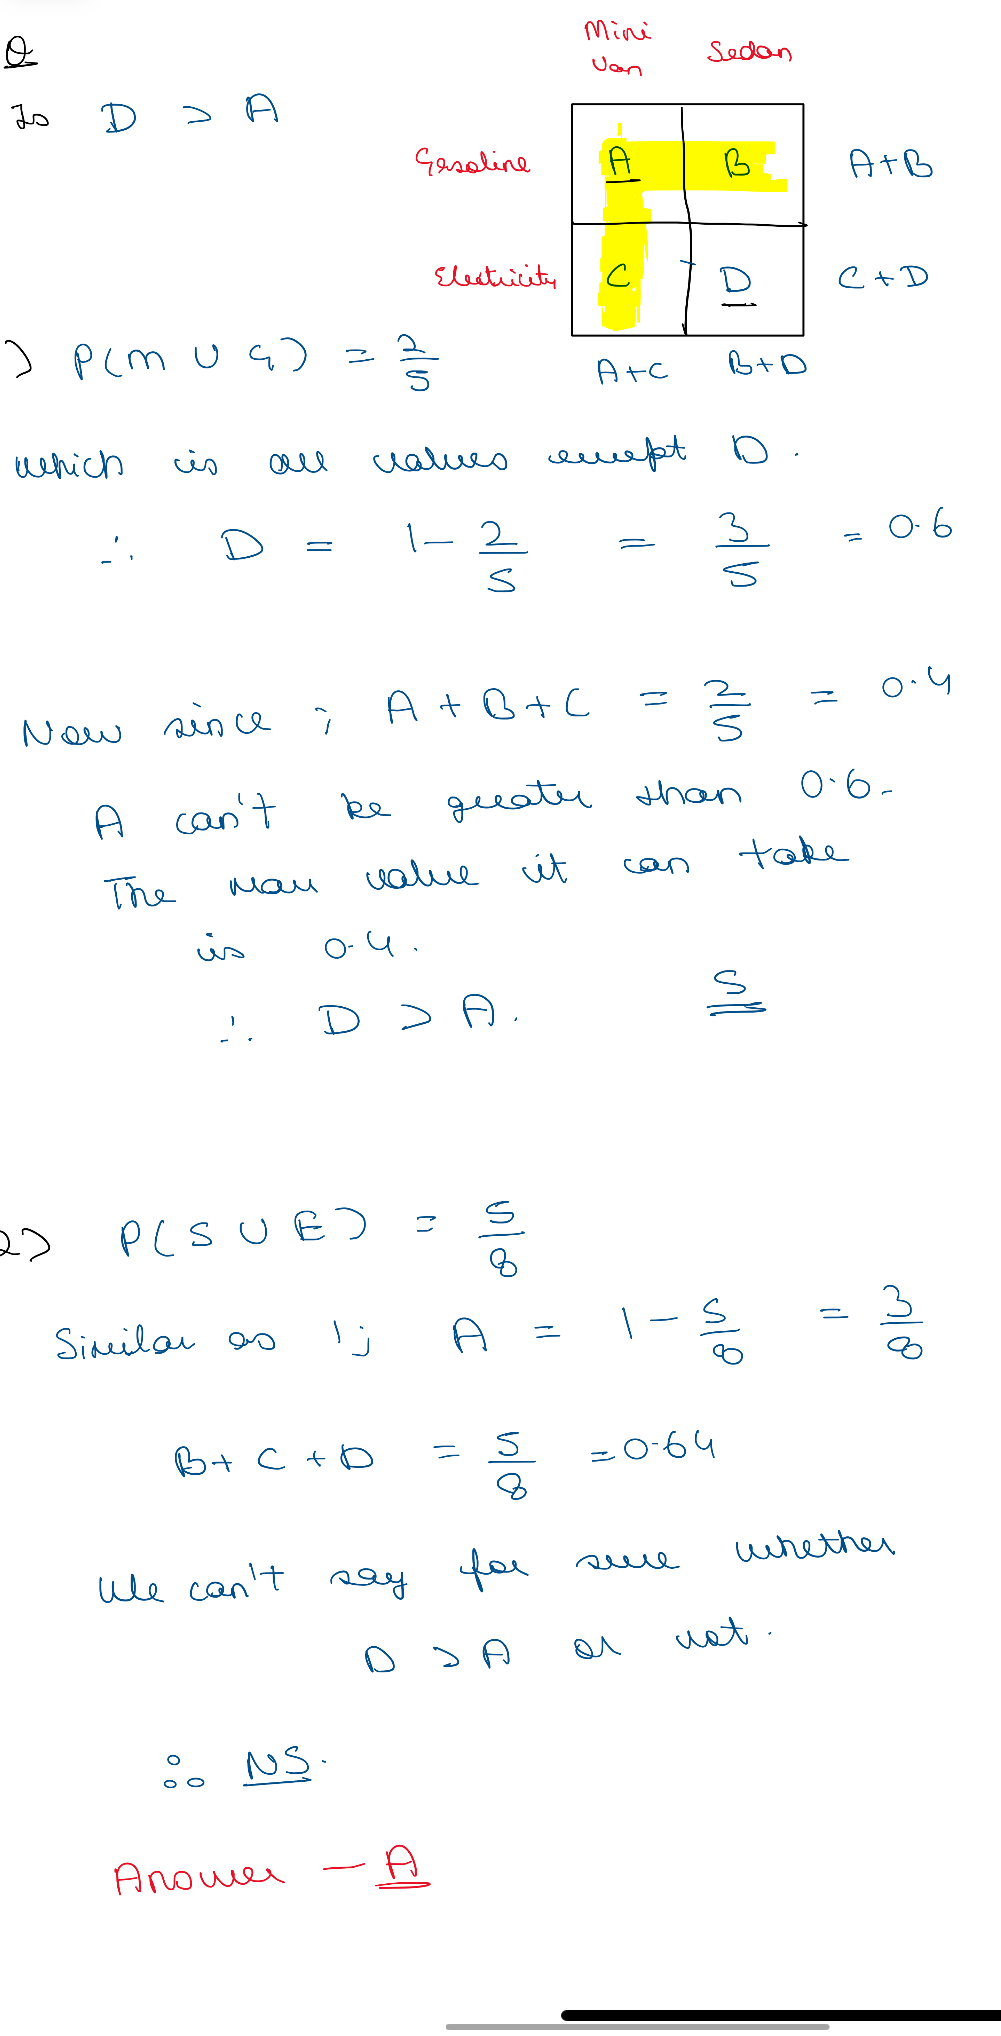 Q
Is D > A
Mini Van
Sedan
Gasoline
A
B
A+B
Electricity
C
D
C+D
A+C
B+D
) P(M ∪ G) = 2/5
which is all values except D.
∴ D = 1 - 2/5 = 3/5 = 0.6
Now since ; A + B + C = 2/5 = 0.4
A can't be greater than 0.6.
The max value it can take
is 0.4.
∴ D > A. S
2) P(S ∪ E) = 5/8
Similar as 1; A = 1 - 5/8 = 3/8
B + C + D = 5/8 = 0.64
We can't say for sure whether
D > A or not.
∴ NS.
Answer - A